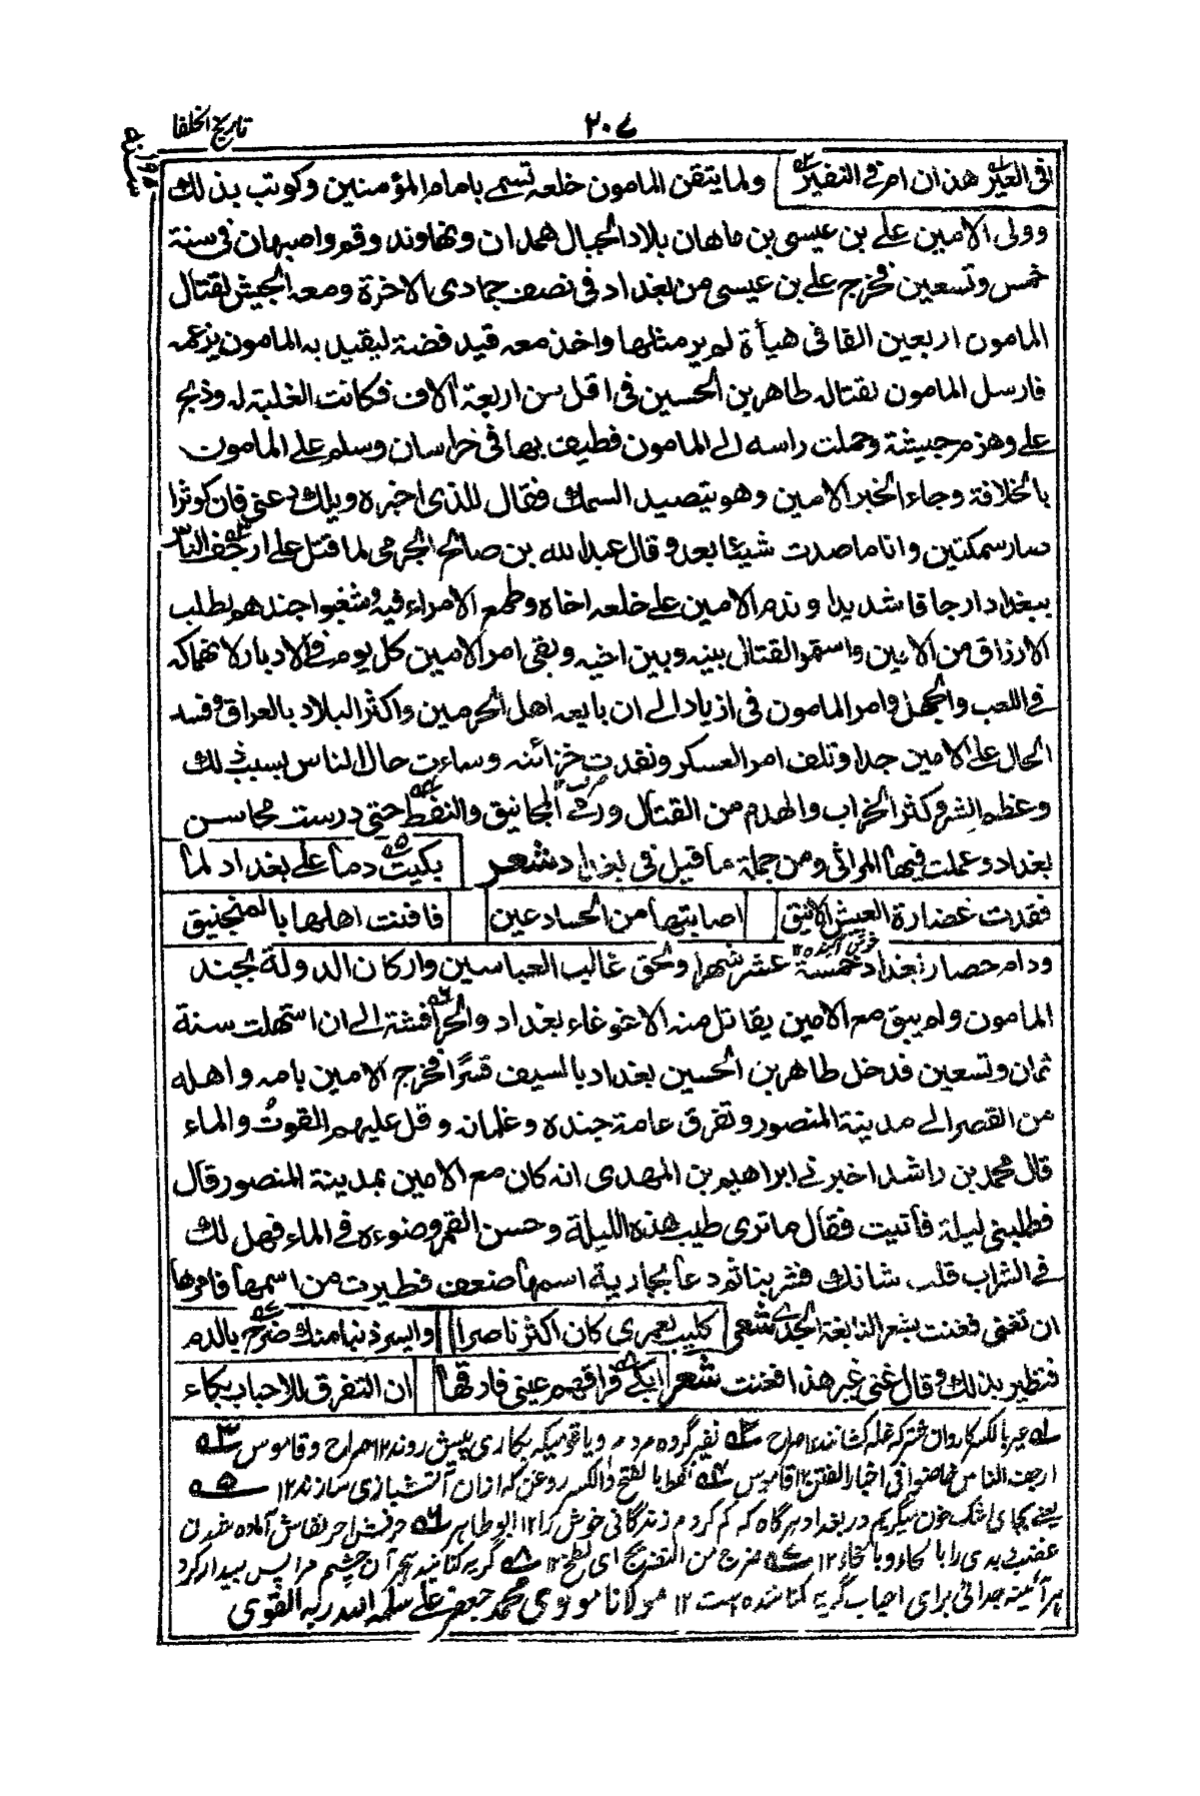 تاريخ الخلفا
٢٠٧
فی العیر هذان امر فی النفیر ولما يتقن المامون خلعه تسمے بامام المؤمنين وكوتب بذلك
وولى الامين علے بن عيسى بن ماهان بلاد الجبال همدان ونهاوند وقم واصبهان فى سنة
خمس وتسعين فخرج علے بن عيسى من بغداد فى نصف جمادى الاخرة ومعه الجيش لقتال
المامون اربعين الفا فى هيأة لم ير مثلها واخذ معه قيد فضة ليقيد به المامون بزعمه
فارسل المامون لقتاله طاهر بن الحسين فى اقل من اربعة آلاف فكانت الغلبة له وذبح
علے وهزم جيشة وحملت راسه الے المامون فطيف بها فى خراسان وسلم علے المامون
بالخلافة وجاء الخبر الامين وهو يتصيد السمك فقال للذى اخبره ويلك دعنى فان كوثرا
صاد سمكتين وانا ما صدت شيئا بعد وقال عبد الله بن صالح الجرمى لما قتل علے ارجف الناس
ببغداد ارجافا شديدا وندم الامين علے خلعه اخاه وطمع الامراء فيه وشغبوا جندهم بطلب
الارزاق من الامين واستمر القتال بينه وبين اخيه وبقى امر الامين كل يوم فے الادبار لانهماكه
فے اللعب والجهل وامر المامون فى ازياد الے ان بايعه اهل الحرمين واكثر البلاد بالعراق وفسد
الحال علے الامين جدا وتلف امر العسكر ونفدت خزائنه وساءت حال الناس بسبب ذلك
وعظم الشر وكثر الخراب والهدم من القتال ورمے المجانيق والنفط حتى درست محاسن
بغداد وعملت فيها المراثى ومن جملة ما قيل فى بغداد شعر بكيت دما علے بغداد لما
فقدت غضارة العيش الانيق اصابتها من الحساد عين فافنت اهلها بالمنجنيق
ودام حصار بغداد خمسة عشر شهرا ولحق غالب العباسين واركان الدولة بجند
المامون ولم يبق مع الامين يقاتل منه الا غوغاء بغداد والحرافشة الے ان استهلت سنة
ثمان وتسعين فدخل طاهر بن الحسين بغداد بالسيف قسرًا فخرج الامين بامه واهله
من القصر الے مدينة المنصور وتفرق عامة جنده وغلمانه وقل عليهم القوت والماء
قال محمد بن راشد اخبرنے ابراهيم بن المهدى انه كان مع الامين بمدينة المنصور قال
فطلبنى ليلة فأتيت فقال ما ترى طيب هذه الليلة وحسن القمر وضوءه فے الماء فهل لك
فے الشراب قلت شانك فشربنا ثم دعا بجارية اسمها ضعف فطيرت من اسمها فامرها
ان تغنى فغنت بشعر النابغة الجعدے شعر كليب لعمرى كان اكثر ناصرا وايسر ذنبا منك ضرج بالدم
فتطير بذلك وقال غنى غير هذا فغنت شعر ابكے فراقهم عينى فارقها ان التفرق للاحباب بكاء
له عير بالكسر كاروان شتر كه غله كشانند ١٢ صراح ٢ه نفير گروه مردم و يا قوميكه بكارى پيش روند ١٢ صراح وقاموس ٣ه
ارجف الناس خاضوا فى اخبار الفتن ١٢ قاموس ٤ه نفط بالفتح والكسر روغن كه ازان آتشبازى سازند ١٢ ٥ه
يعنے بجاى اشك خون ميگريم در بغداد هرگاه كه گم كردم زندگانى خوش را ١٢ ابو طاهر ٦ه
١٢ ٧ه ضرج من التضريج اى لطخ ١٢ ٨ه
هر آئينه جدائى براى احباب گريه كناننده است ١٢ مولانا مولوى محمد جعفر علے سلمه الله ربه القوى